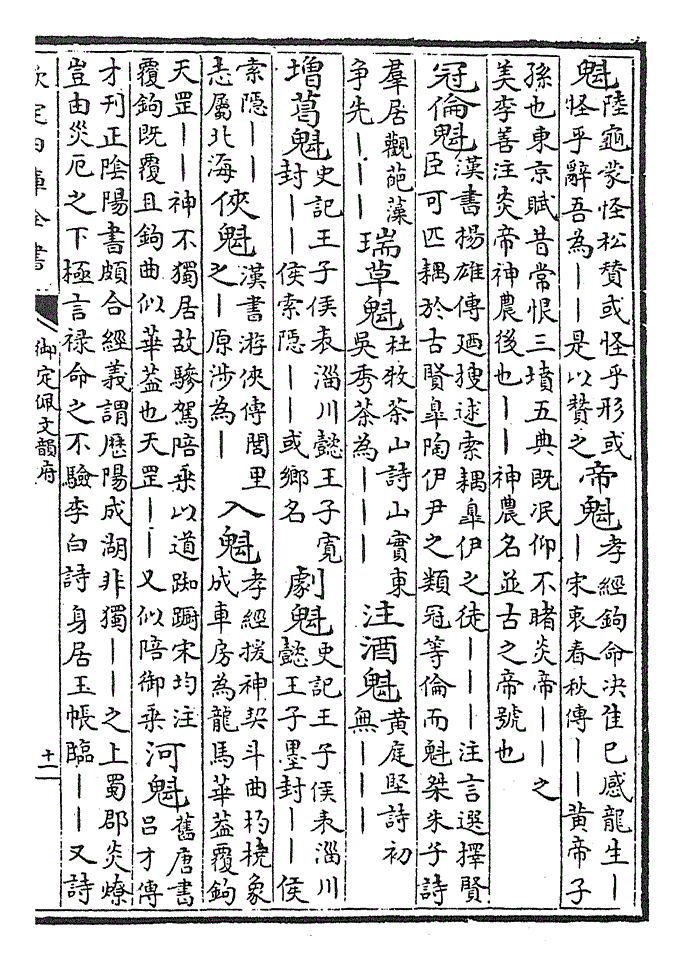 魁陸龜蒙怪松贊或怪乎形或怪乎辭吾為丨丨是以贊之帝魁孝經鉤命决隹巳感龍生丨丨宋衷春秋傳丨丨黄帝子
孫也東京賦昔常恨三墳五典既泯仰不睹炎帝丨丨之美李善注炎帝神農後也丨丨神農名並古之帝號也
冠倫魁漢書揚雄傳廼搜逑索耦臯伊之徒丨丨丨注言選擇賢臣可匹耦於古賢臯陶伊尹之類冠等倫而魁桀朱子詩
羣居觀葩藻争先丨丨丨瑞草魁杜牧茶山詩山實東吳秀茶為丨丨丨注酒魁黄庭堅詩初無丨丨丨
増葛魁史記王子侯表淄川懿王子寛封丨丨侯索隠丨丨或鄉名劇魁史記王子侯表淄川懿王子墨封丨丨侯
索隠丨丨志屬北海俠魁漢書游俠傳閭里之丨原涉為丨入魁孝經援神契斗曲杓橈象成車房為龍馬華葢覆鉤
天罡丨丨神不獨居故驂駕陪乘以道踟蹰宋均注覆鉤既覆且鉤曲似華葢也天罡丨丨又似陪御乘河魁舊唐書吕才傳
才刊正陰陽書頗合經義謂歴陽成湖非獨丨丨之上蜀郡炎燎豈由災厄之下極言禄命之不驗李白詩身居玉帳臨丨丨又詩
欽定四庫全書
御定佩文韻府
十二